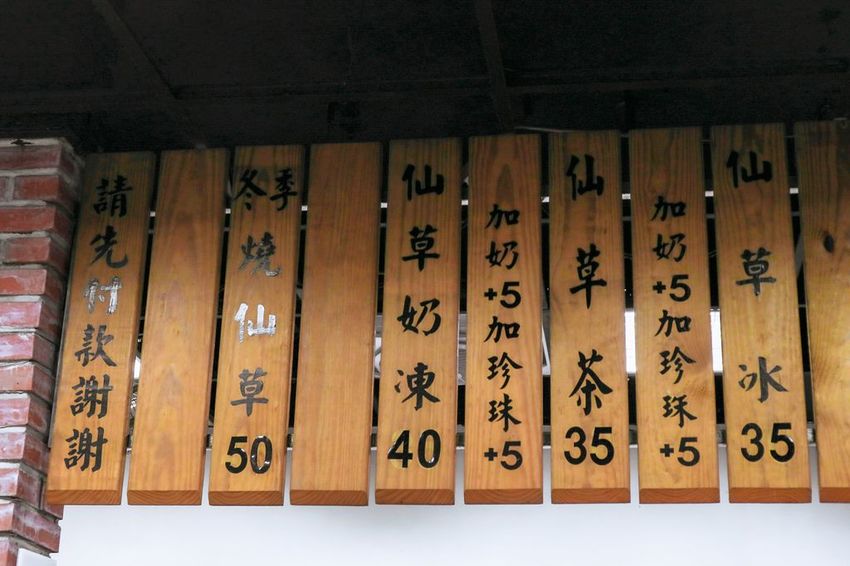 仙草冰35
加奶+5加珍珠+5
仙草茶35
加奶+5加珍珠+5
仙草奶凍40
冬季燒仙草50
請先付款謝謝